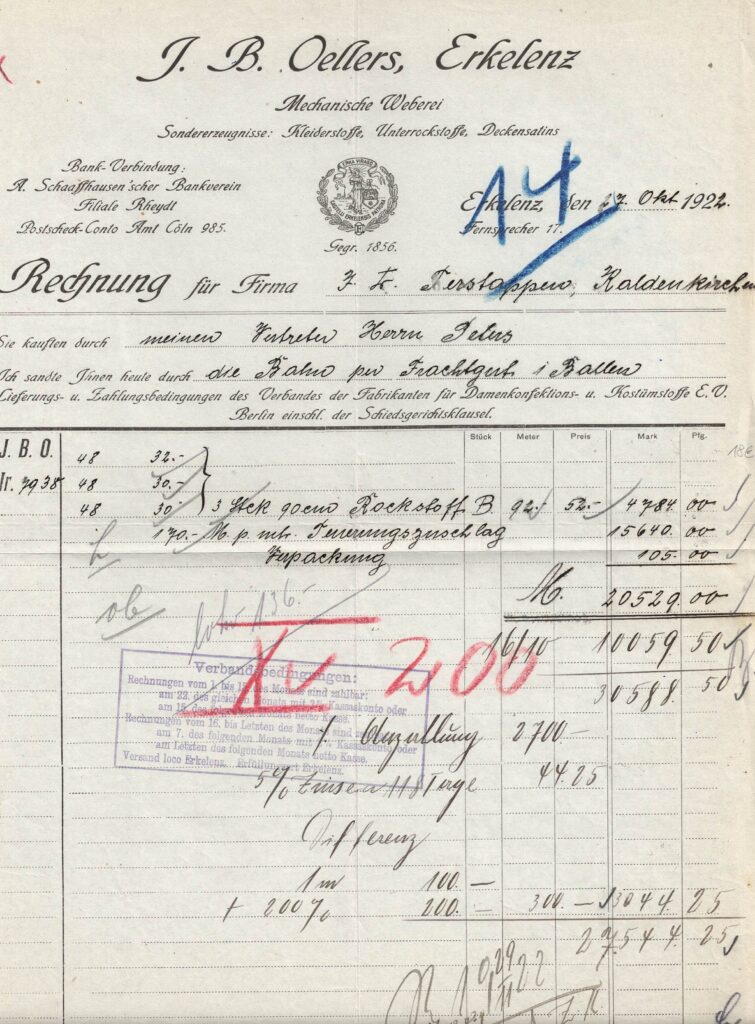 J. B. Oellers, Erkelenz
Mechanische Weberei
Sondererzeugnisse: Kleiderstoffe, Unterrockstoffe, Deckensatins
Bank-Verbindung:
A. Schaaffhausen'scher Bankverein
Filiale Rheydt
Postscheck-Conto Amt Cöln 985.
Gegr. 1856.
14
Erkelenz, den 27 Okt 1922.
Fernsprecher 17.
Rechnung für Firma J. Fr. Terstappen, Kaldenkirchen
Sie kauften durch meinen Vertreter Herrn Peters
Ich sandte Ihnen heute durch die Bahn per Frachtgut 1 Ballen
Lieferungs- u. Zahlungsbedingungen des Verbandes der Fabrikanten für Damenkonfektions- u. Kostümstoffe E. V.
Berlin einschl. der Schiedsgerichtsklausel.
Stück Meter Preis Mark Pfg.
J. B. O. 48 32.-
Nr. 7938 48 30.-
48 30 3 Stck 90cm Rockstoff B 92.- 52.- 4784.00
170.- M. p. mtr. Teuerungszuschlag 15640.00
Verpackung 105.00
M. 20529.00
ob
136.-
16/10 10059 50
200
30588 50
Verbandsbedingungen:
Rechnungen vom 1. bis 15. des Monats sind zahlbar:
am 22. des gleichen Monats mit Kassaskonto oder
am 15. des folgenden Monats netto Kasse.
Rechnungen vom 16. bis Letzten des Monats sind
am 7. des folgenden Monats mit Kassaskonto oder
am Letzten des folgenden Monats netto Kasse.
Versand loco Erkelenz. Erfüllungsort Erkelenz.
Anzallung 2700.-
5% Zinsen 118 Tage 44.25
Differenz
1 m 100.-
+ 200% 200.- 300.- 3044 25
27544 25